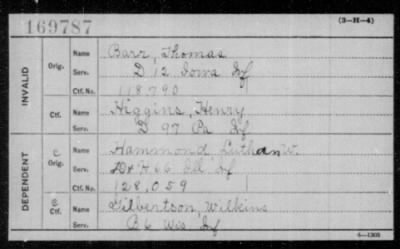 169787
(3-H-4)
INVALID
Orig.
Name Barr, Thomas
Serv. D 12 Iowa Inf
Ctf. No. 118,790
Ctf.
Name Higgins, Henry
Serv. 97 Pa Inf
DEPENDENT
Orig.
Name Hammond, Luthan W.
Serv. H 66 Ill Inf
Ctf. No. 128,059
Ctf.
Name Gilbertson, Wilkins
Serv. B 6 Wis Inf